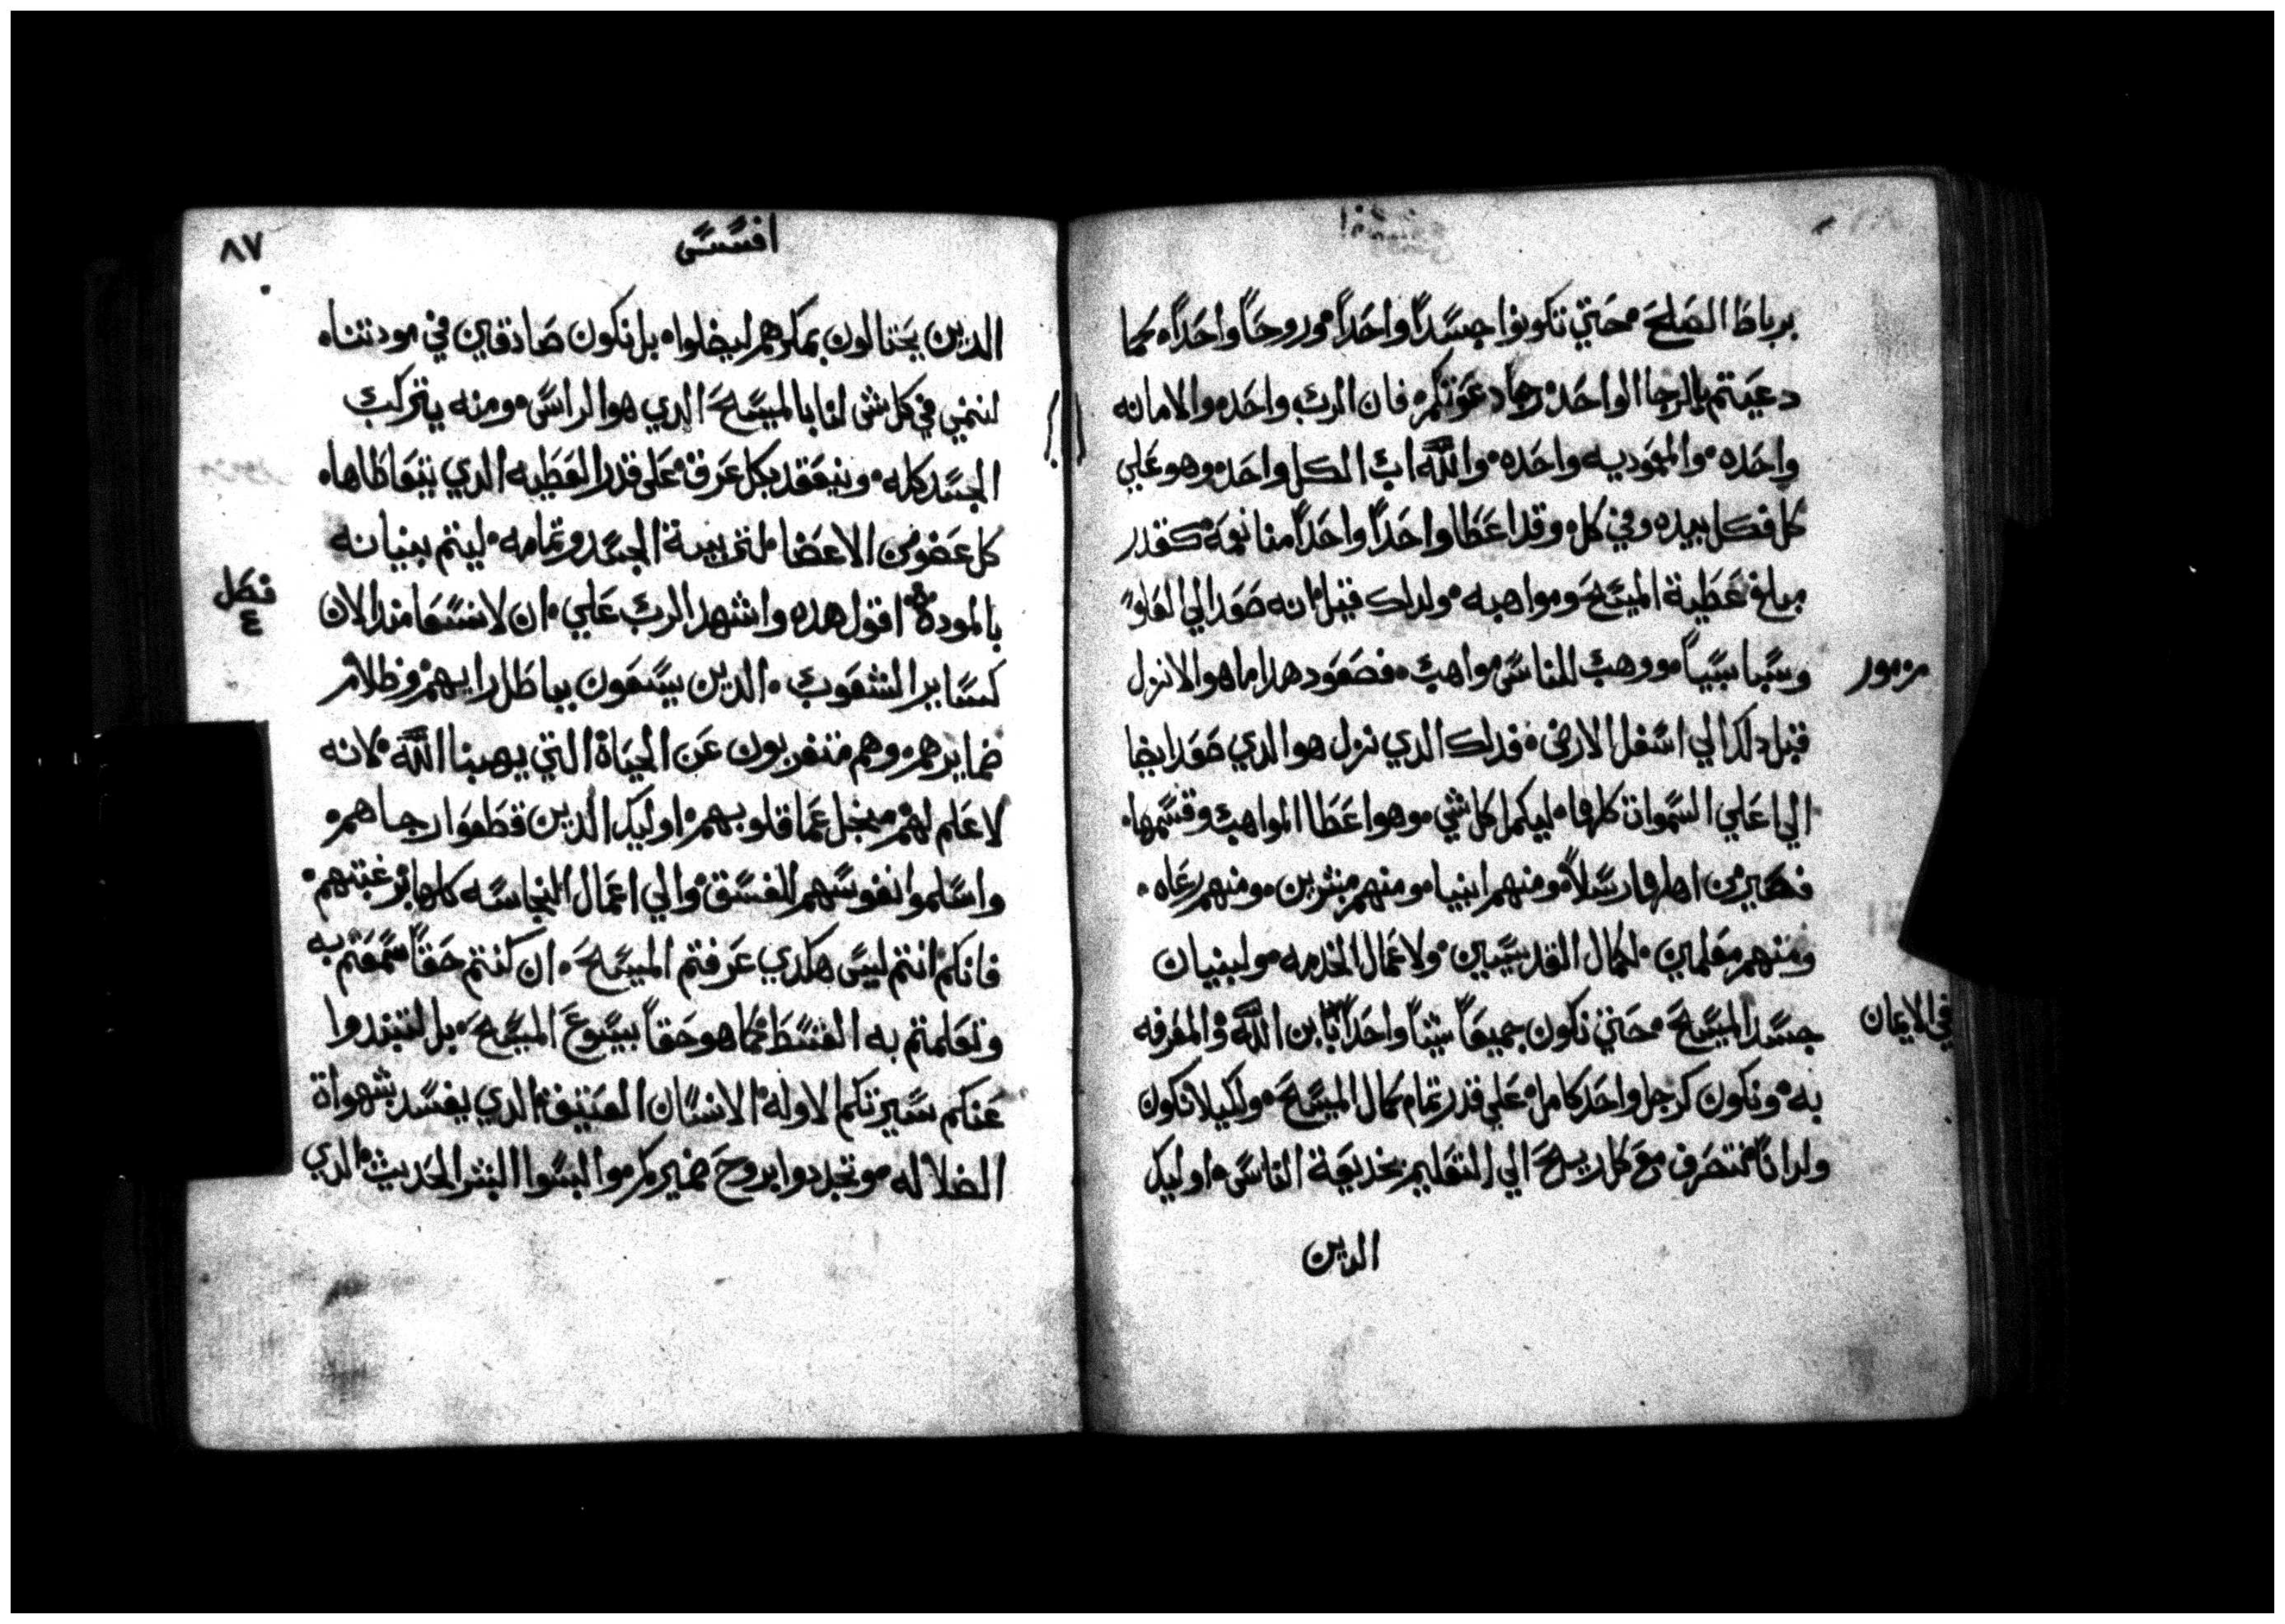 برباط الصلح، حتي تكونوا جسداً واحداً، وروحاً واحداً، كما
دعيتم بالرجا الواحد، رجا دعوتكم، فان الرب واحد، والامانه
واحده، والمعموديه واحده، والله اب الكل واحد، وهو علي
كل فكل بيده وفي كل، وقد اعطا واحداً واحداً منا نعمه كقدر
مبلغ عطية المسيح ومواهبه، ولدلك قيل، انه صعد الي العلو
وسبا سبياً، ووهب للناس مواهب، فصعود هدا ما هو الا نزل
قبل دلك الي اسفل الارض، فدلك الدي نزل هو الدي صعد ايضا
الي اعلي السموات كلها، ليكمل كل شي، وهو اعطا المواهب وقسمها،
فصير من اهلها رسلاً، ومنهم انبيا، ومنهم مبشرين، ومنهم رعاه،
ومنهم معلمين، لكمال القديسين، ولاعمال الخدمه، ولبنيان
جسد المسيح، حتي نكون جميعاً شيئاً واحداً بابن الله والمعرفه
به، ونكون كرجل واحد كامل، علي قدر تمام كمال المسيح، ولكيلا نكون
ولدانا نتصرف مع كل ريح الي التعليم بخديعة الناس، اوليك
الدين
مزمور
في الايمان
افسس
٨٧
الدين يحتالون بمكرهم ليضلوا، بل نكون صادقين في مودتنا،
لننمي في كل شي لنا بالمسيح الدي هو الراس، ومنه يتركب
الجسد كله، وينعقد بكل عرق، علي قدر العطيه الدي يتعاطاها،
كل عضو من الاعضا، لتربية الجسد وتمامه، ليتم بنيانه
بالموده، اقول هده واشهد الرب علي، ان لا نسعا مند الان
كساير الشعوب، الدين يسعون بباطل رايهم، وظلام
ضمايرهم، وهم متغربون عن الحياة التي يهبنا الله، لانه
لا علم لهم، من اجل عما قلوبهم، اوليك الدين قطعوا رجاهم،
واسلموا نفوسهم للفسق، والي اعمال النجاسه كلها برغبتهم،
فانكم انتم ليس هكدي عرفتم المسيح، ان كنتم حقاً سمعتم به
وتعلمتم به القسط، كما هو حقاً بيسوع المسيح، بل لتبتدوا
عنكم سيرتكم الاوله، الانسان العتيق، الدي يفسد بشهواة
الضلاله، وتجددوا بروح ضميركم، والبسوا البشر الحديث، الدي
فصل
٤